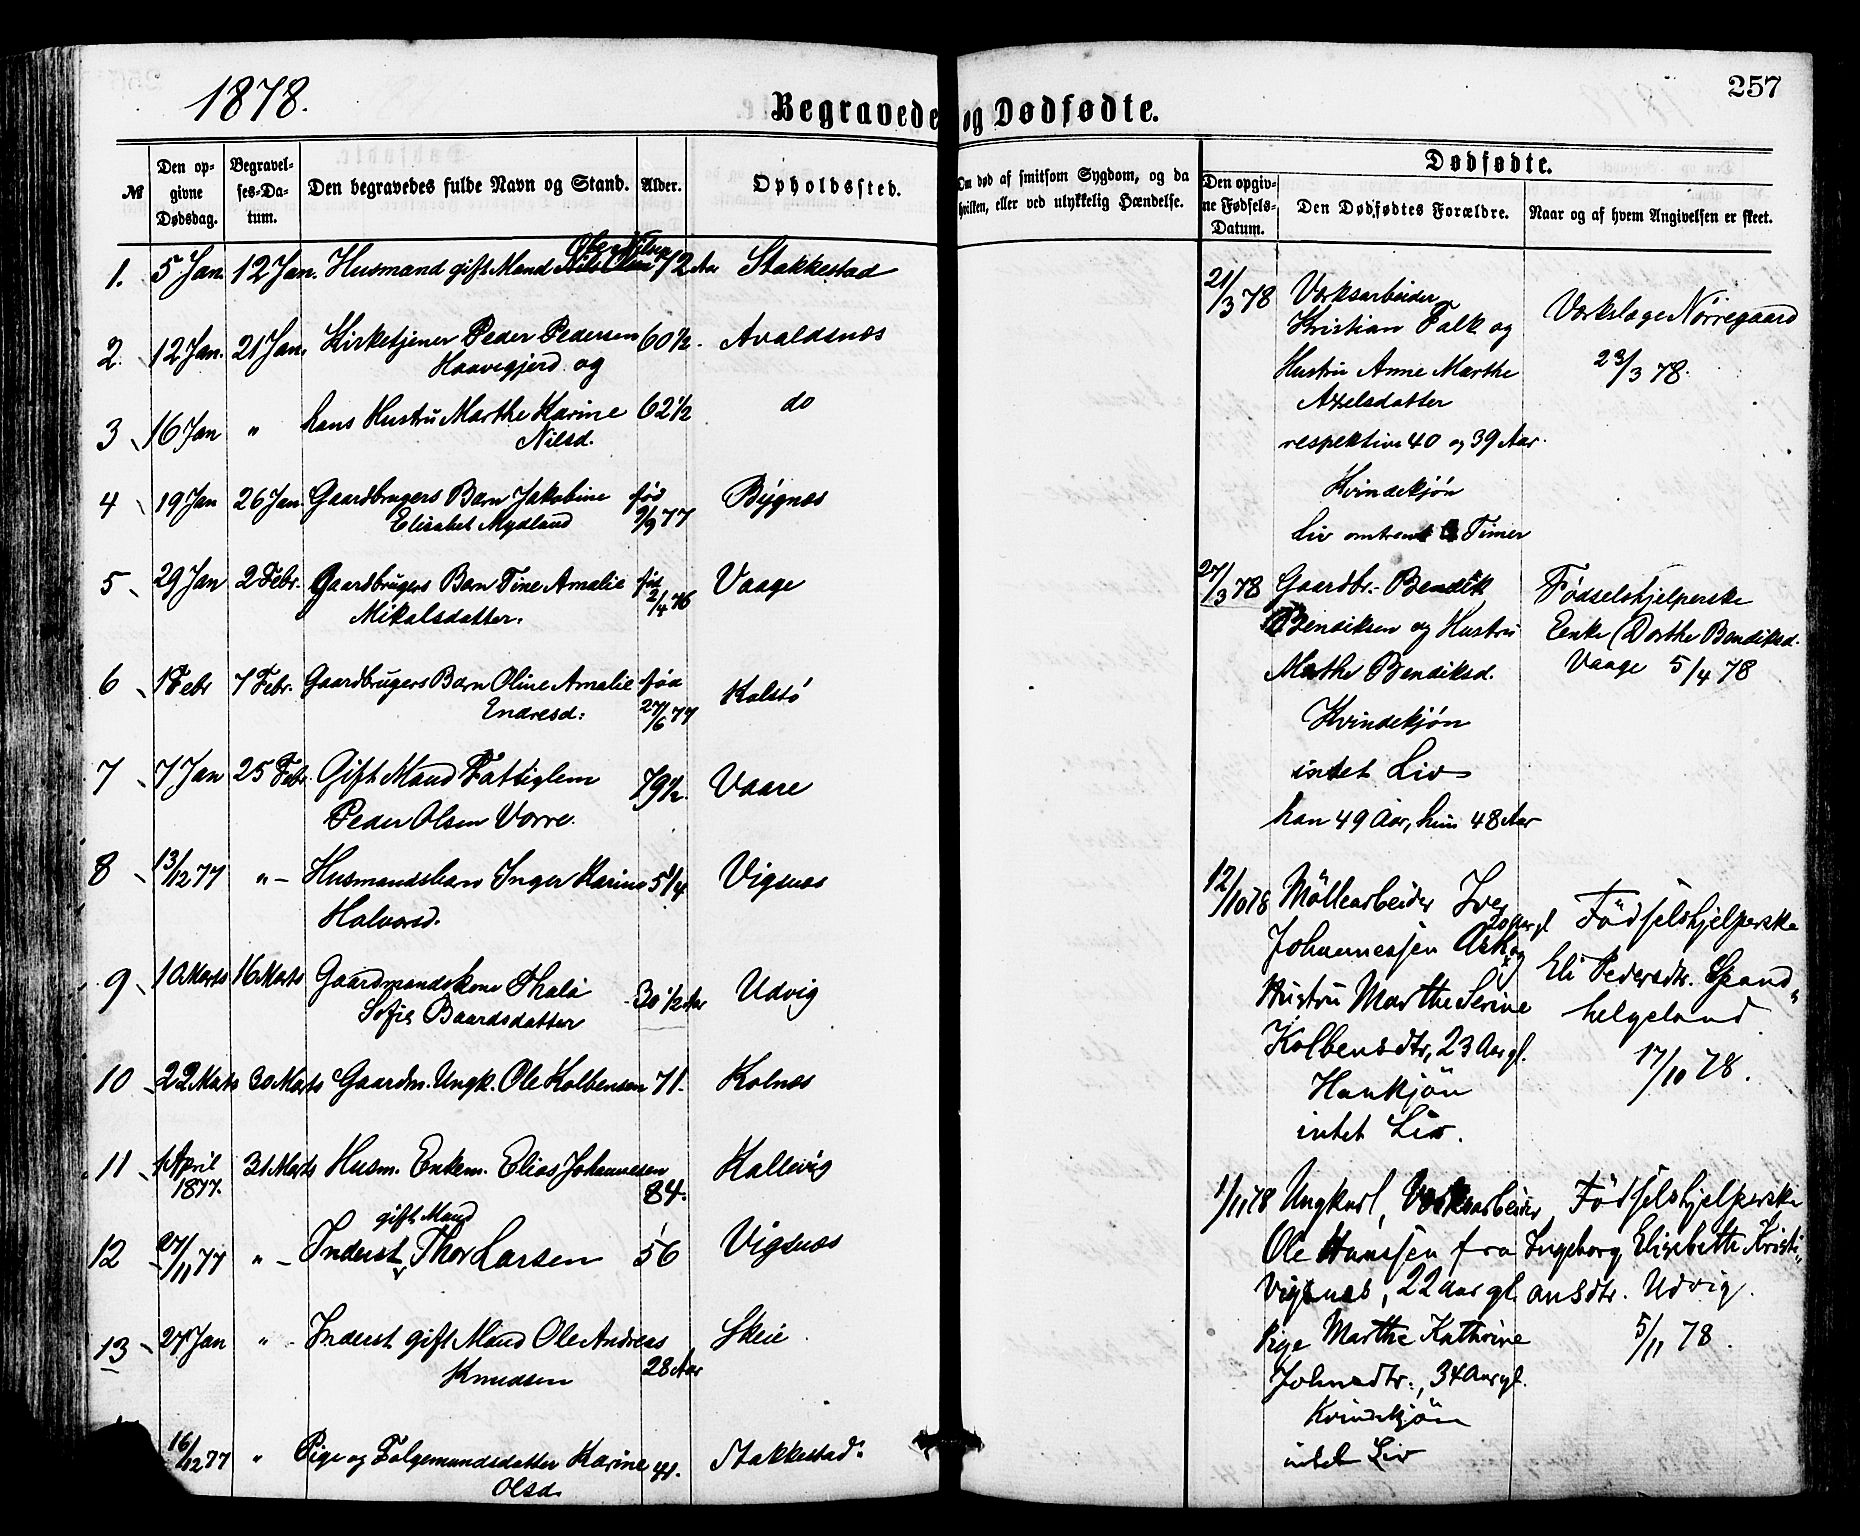 1878.
257
Begravede og Dødfødte.
№
Den opgivne Dødsdag.
Begravelses-Datum.
Den begravedes fulde Navn og Stand.
Alder.
Opholdssted.
Om død af smitsom Sygdom, og da hvilken, eller ved ulykkelig Hændelse.
Dødfødte.
Den opgivne Fødsels-Datum.
Den Dødfødtes Forældre.
Naar og af hvem Angivelsen er skeet.
Ole Nilsen
1. 5 Jan. 12 Jan. Husmand gift Mand Nils Olsen 72 Aar Stakkestad
2. 12 Jan. 21 Jan. Kirketjener Peder Pedersen 60 1/2. Avaldsnæs
Haavegjerd og
3 16 Jan " hans Hustru Marthe Karine 62 1/2 do
Nilsd.
4 19 Jan 26 Jan. Gaardbrugers Barn Jakobine fød Bygnæs
Elisabet Mydland 9/9 77
5 29 Jan 2 Febr. Gaardbrugers Barn Tine Amalie fød Vaage
Mikalsdatter. 2/4 76
6 1 Febr 7 Febr. Gaardbrugers Barn Oline Amalie fød Kolstö
Endresd: 27/6 77
7 7 Jan 25 Febr Gift Mand Fattiglem 79 1/2. Vaare
Peder Olsen Vorre.
8 13/12 77 " - Husmandsbarn Inger Karine 5 1/4 Vigsnæs
Halvorsd.
9 10 Marts 16 Marts Gaardmandskone Thala 30 1/2 Aar Udvig
Sofie Baardsdatter
10 22 Marts 30 Marts Gaardm. Ungk. Ole Kolbensen 71. Kolnæs
11 1 April 31 Marts Husm. Enkem. Elias Johannesen Kallevig
1877. 84.
gift Mand
12 27/11 77 " - Inderst Thor Larsen 56 Vigsnæs
13 27 Jan " Inderst gift Mand Ole Andreas Skeie
Knudsen 28 Aar
16/12 77 " Pige og Følgemandsdatter Karine 41. Stakkestad:
Olsd.
21/3 78 Værksarbeider
Kristian Falk og
Hustru Anne Marthe
Axelsdatter
respektive 40 og 39 Aar.
Kvindekjön
Liv omtrent Timer
Værkslæge Nörregaard
23/3 78.
27/3 78 Gaardbr. Bendik
Bendiksen og Hustru
Marthe Bendiksd.
Kvindekjön
intet Liv
han 49 Aar, hun 48 Aar
Födselshjelperske
Enke Dorthe Bendiksd.
Vaage 5/4 78
12/10 78 Möllearbeider Iver
20 Aar gl
Johannessen Ask og
Hustru Marthe Serine
Kolbensdtr, 23 Aar gl.
Hankjön
intet Liv.
Födselshjelperske
Eli Pedersdtr. Spand-
helgeland
17/10 78.
1/11 78 Ungkarl, Værksarbeider
Ole Hanssen fra
Vigsnæs, 22 Aar gl.
Pige Marthe Kathrine
Johnsdtr., 34 Aar gl.
Kvindekjön
intet Liv
Födselshjelperske
Ingeborg Elisebeth Kristi-
ansdtr. Udvig.
5/11 78.